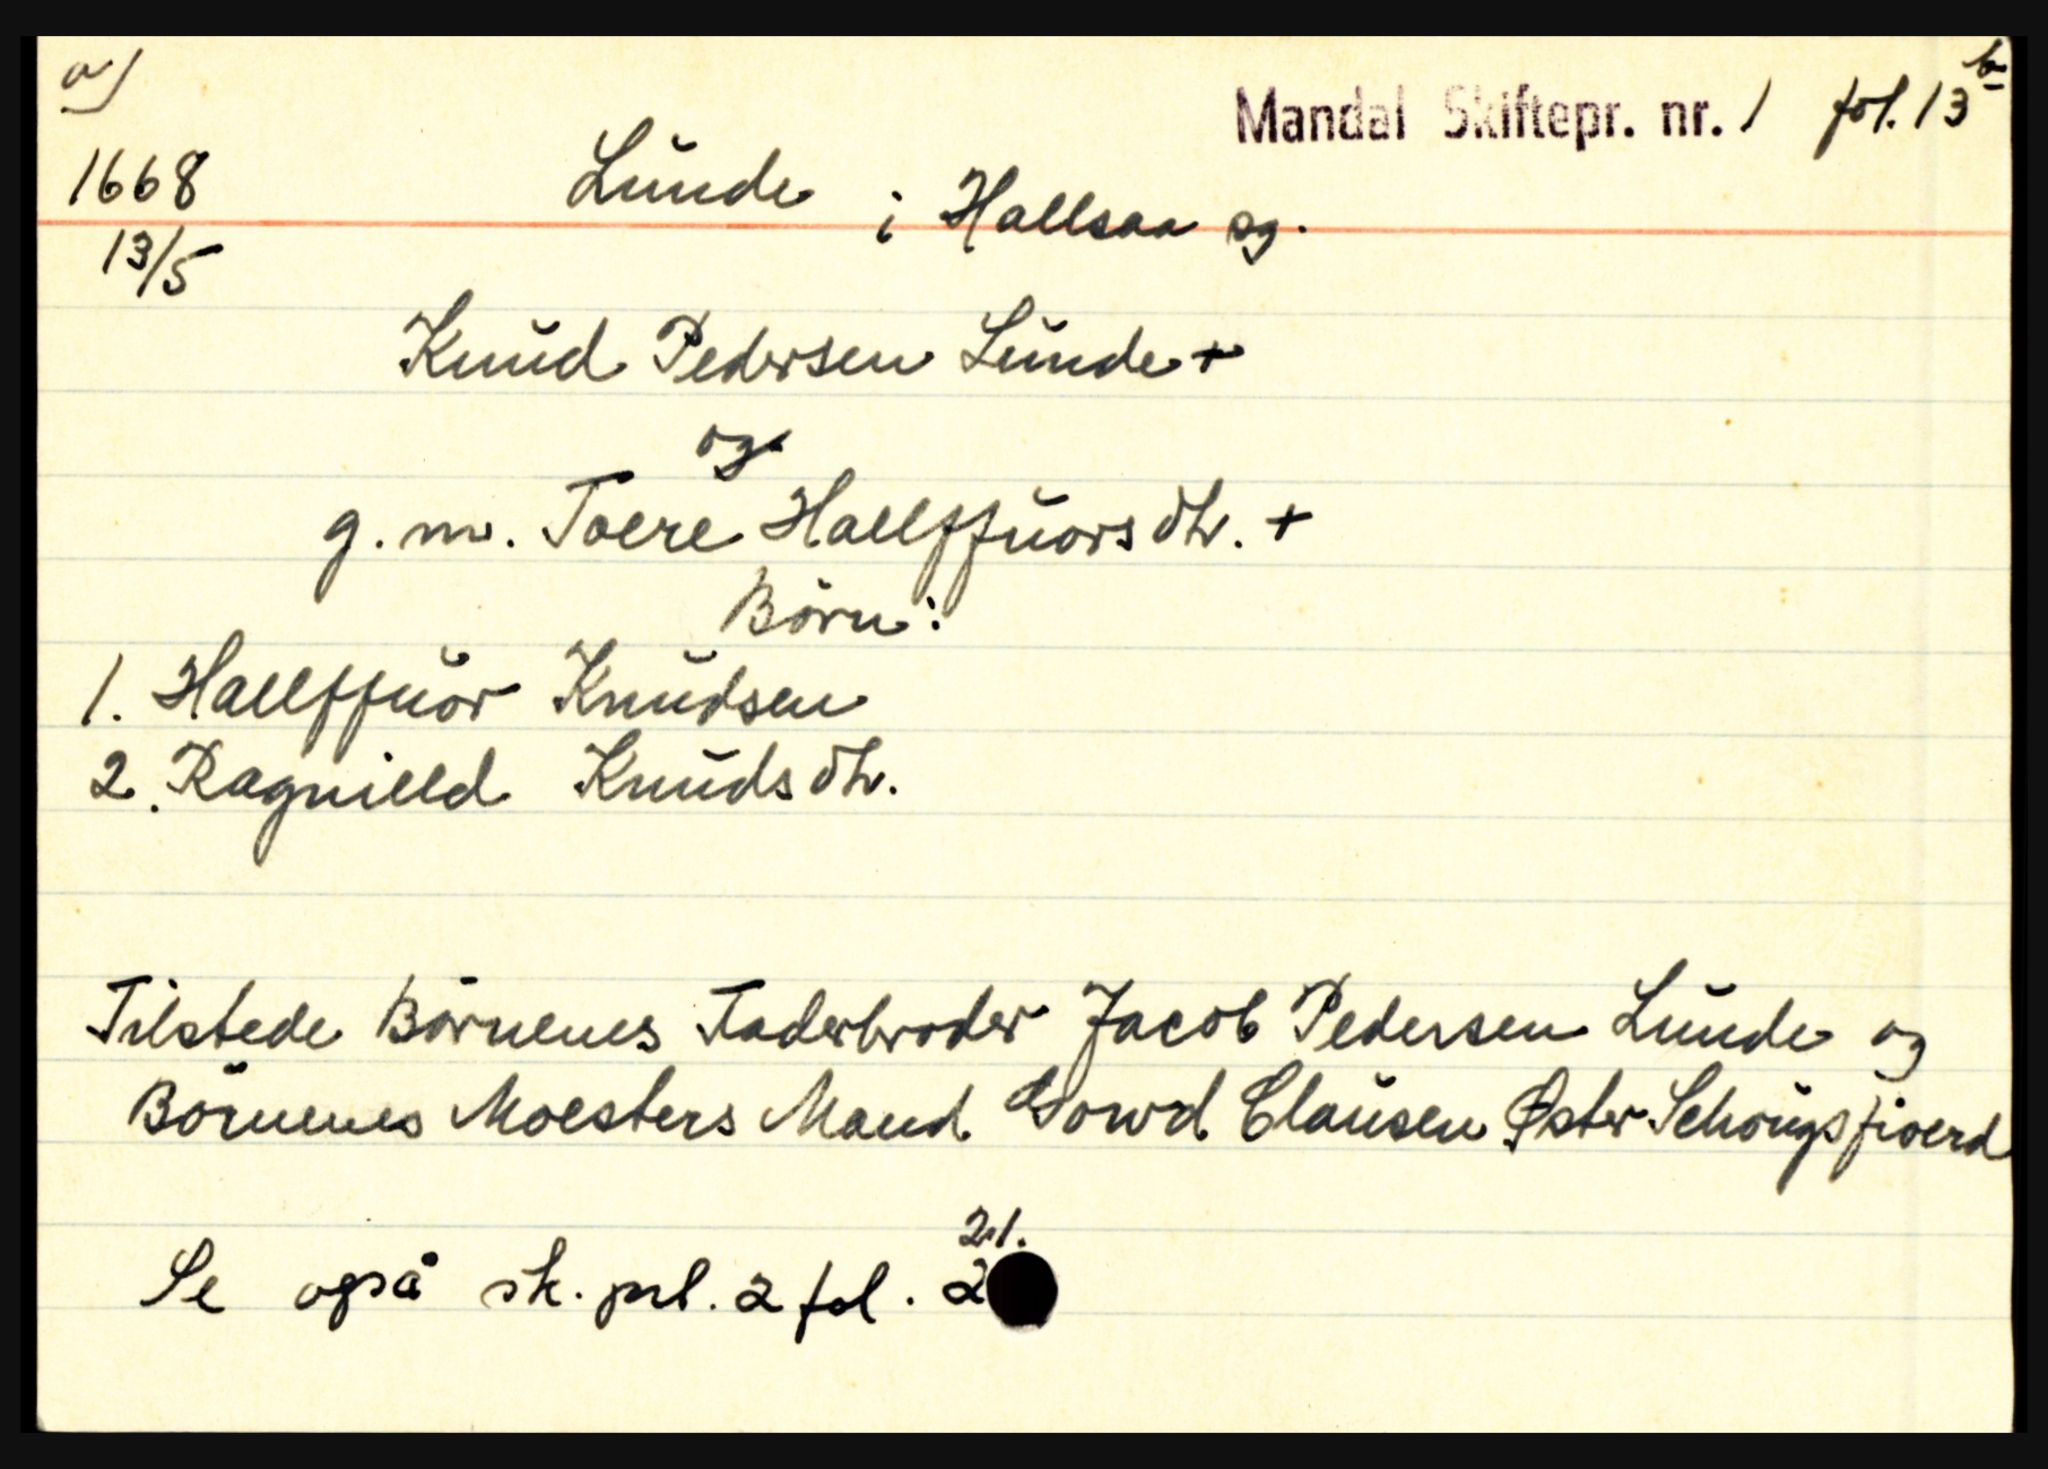 a)
Mandal Skiftepr. nr. 1 fol. 13 b
1668
Lunde i Hallsaa sg.
13/5
Knud Pedersen Lunde +
og
g. m. Toere Hallffuors dtr. +
Börn:
1. Hallffuor Knudsen
2. Ragnilld Knuds dtr.
Tilstede Börnenes Faderbroder Jacob Pedersen Lunde og
Börnenes Moesters Mand Gowrd Clausen Øster Schougsfioerd
21.
Se også sk. prl. 2 fol. 2